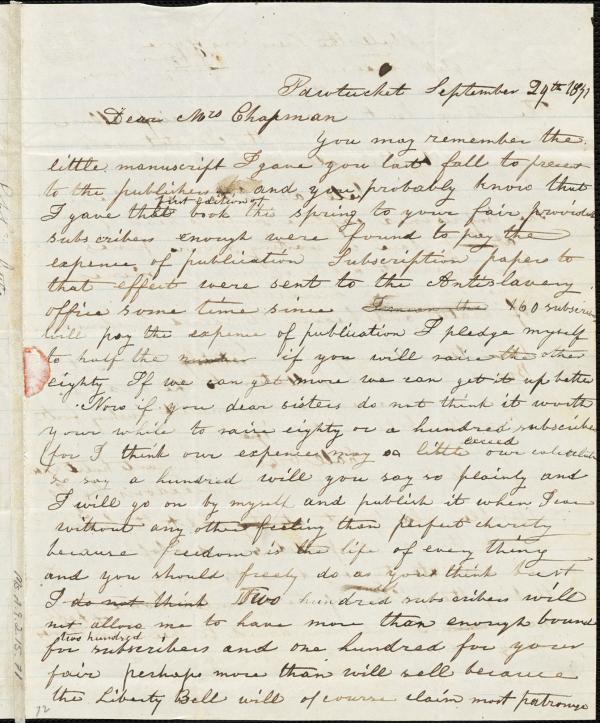 Pawtucket September 29th 1841
Dear Mrs Chapman
You may remember the
little manuscript I gave you last fall to present
to the publishers and you probably know that
first edition of
I gave that book the spring to your fair provided
subscribers enough were found to pay the
expence of publication Subscription papers to
that effect were sent to the Antislavery
office some time since 160 subscri
will pay the expence of publication I pledge myself
to half the number if you will raise the other
eighty If we can get more we can get it up better
Now if you dear sisters do not think it worth
your while to raise eighty or a hundred subscribers
(for I think our expences may a little exceed our calculati
so say a hundred will you say so plainly and
I will go on by myself and publish it when I can
without any other feeling than perfect charity
because freedom is the life of every thing
and you should freely do as you think best
I do not think Two hundred subscribers will
not allow me to have more than enough bound
two hundred
for subscribers and one hundred for your
fair perhaps more than will sell because
the Liberty Bell will of course claim most patronage
Ms.A.9.2.15.71
72